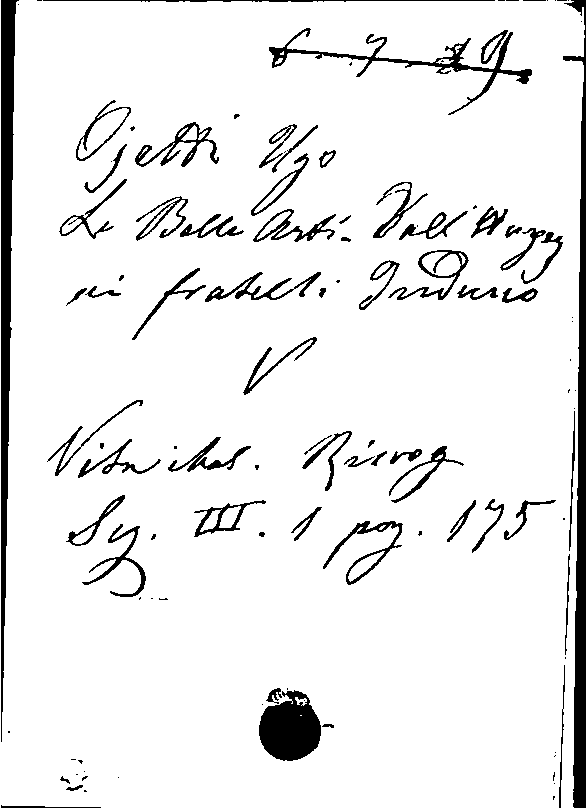 6. 7. 29.
Ojetti Ugo
Le Belle Arti. Dall' Hayez
ai fratelli Induno
V
Vita ital. Risorg
Sez. III. 1 pag. 175